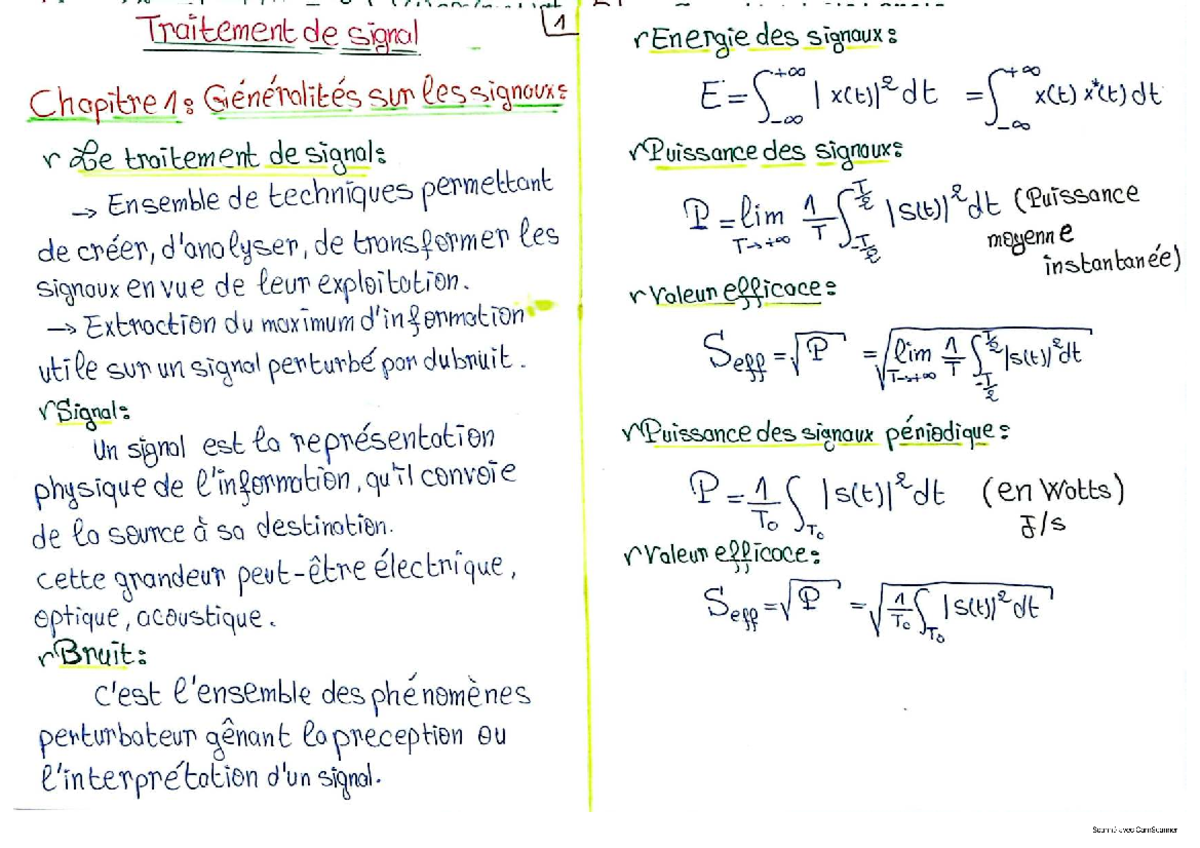 Traitement de signal
1
Chapitre 1: Généralités sur les signaux:
Le traitement de signal:
→ Ensemble de techniques permettant
de créer, d'analyser, de transformer les
signaux en vue de leur exploitation.
→ Extraction du maximum d'information
utile sur un signal perturbé par du bruit.
Signal:
Un signal est la représentation
physique de l'information, qu'il convoie
de la source à sa destination.
cette grandeur peut-être électrique,
optique, acoustique.
Bruit:
C'est l'ensemble des phénomènes
perturbateur gênant la preception ou
l'interprétation d'un signal.
Energie des signaux:
E = ∫_{-∞}^{+∞} |x(t)|² dt = ∫_{-∞}^{+∞} x(t) x*(t) dt
Puissance des signaux:
P = lim_{T→+∞} 1/T ∫_{-T/2}^{T/2} |s(t)|² dt (Puissance
moyenne
instantanée)
Valeur efficace:
S_eff = √P = √(lim_{T→+∞} 1/T ∫_{-T/2}^{T/2} |s(t)|² dt)
Puissance des signaux périodique:
P = 1/T₀ ∫_{T₀} |s(t)|² dt (en Watts)
J/s
Valeur efficace:
S_eff = √P = √(1/T₀ ∫_{T₀} |s(t)|² dt)
Scanné avec CamScanner